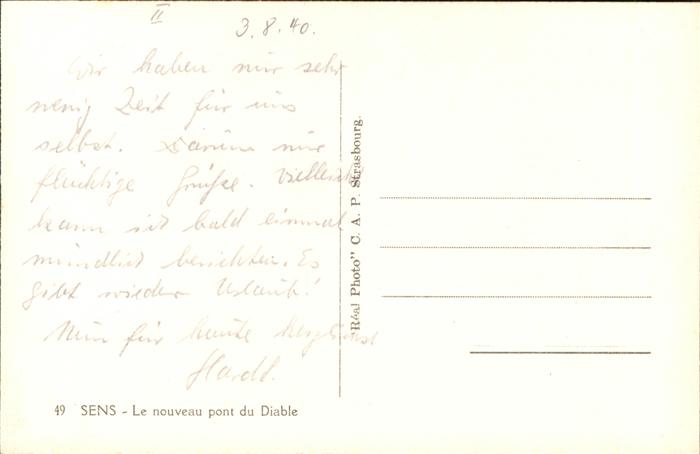 II
3.8.40.
Wir haben nur sehr
wenig Zeit für uns
selbst. Darum nur
flüchtige Grüße. Vielleicht
kann ich bald einmal
mündlich berichten. Es
gibt wieder Urlaub!
Nun für heute herzlichst
"Réal Photo" C. A. P. Strasbourg.
49 SENS - Le nouveau pont du Diable